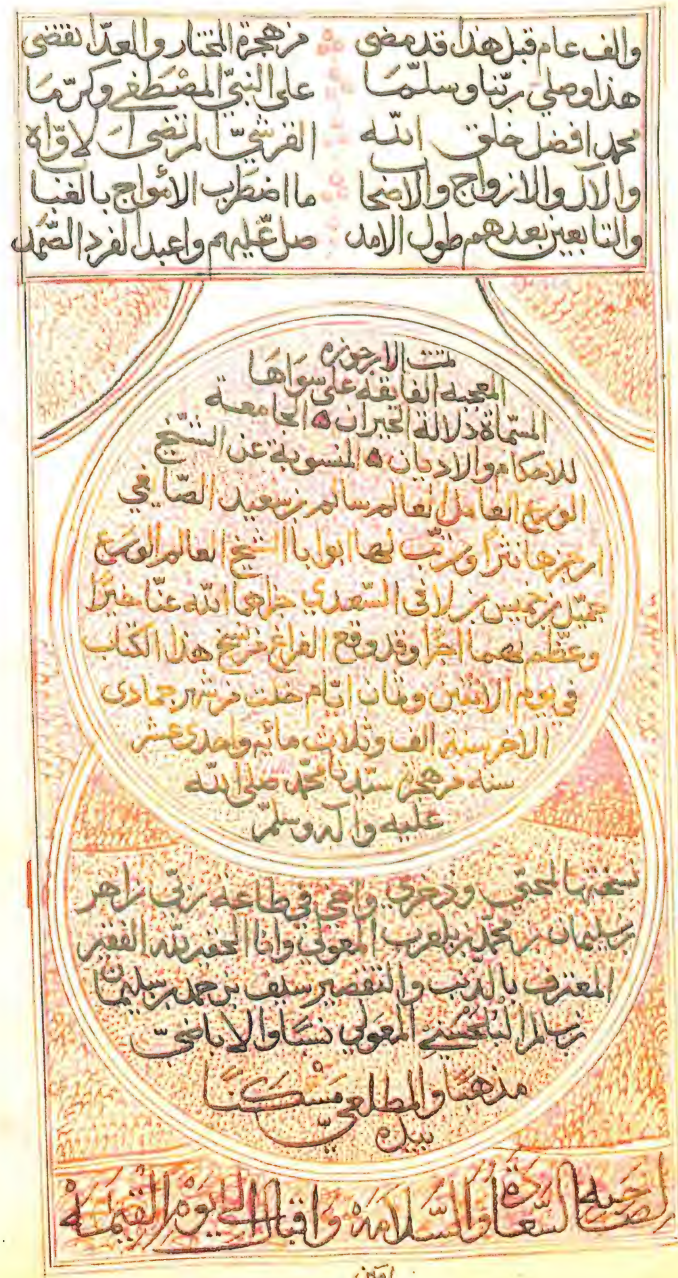 والف عام قبل هذا قد مضى من هجرة المختار والعد انقضى
هذا وصلى ربنا وسلما على النبي المصطفى وكرما
محمد افضل خلق الله القرشي المرتضى الاواه
والآل والازواج والاصحا ما اضطرب الامواج بالغبا
والتابعين بعدهم طول الامد صل عليهم واعبد الفرد الصمد
تمت الارجوزه
المعجبه الفايقه على سواها
المسماة دلالة الحيران الجامعة
للاحكام والاديان المنسوبة عن الشيخ
الورع العامل العالم سالم بن سعيد الصايغي
ارجزها نثرا ورتب لها ابوابا الشيخ العالم الورع
جميل بن خميس بن لافي السعدي جزاهما الله عنا خيرا
وعظم لهما اجرا وقد وقع الفراغ من نسخ هذا الكتاب
في يوم الاثنين وثمان ايام خلت من شهر جمادى
الاخر سنه الف وثلاث مائه واحدى عشر
سنه من هجرة سيدنا محمد صلى الله
عليه وآله وسلم
نسختها لمحبي وذخري واخي في طاعة ربي زاهر
بن سليمان بن محمد بن بلعرب المعولي وانا الحقير لله الفقير
المعترف بالذنب والتقصير سيف بن حمد بن سليمان
بن سالم المعولي نسبا والاباضي
مذهبا والمطلعي مسكنا
بيده
لصاحبه السعادة والسلامه واقبال الى يوم القيمه
امين